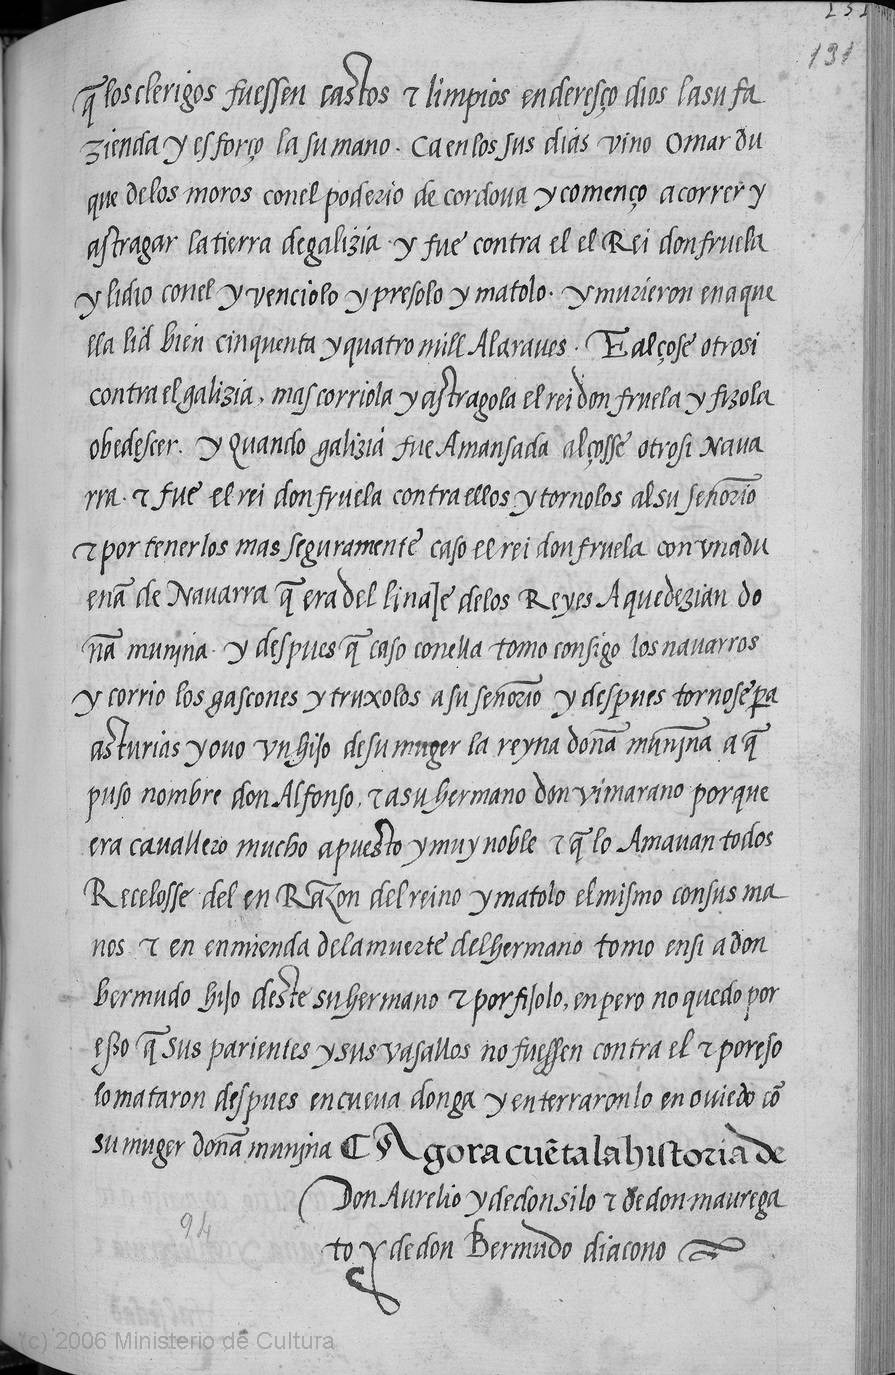 131
131
q̃ los clerigos fuessen castos τ limpios enderesço dios la su fa
zienda y esforço la su mano. Ca en los sus dias vino Omar du
que delos moros conel poderio de cordoua y començo a correr y
astragar la tierra de galizia y fue contra el el Rei don fruela
y lidio conel y venciolo y presolo y matolo. y murieron en aque
lla lid bien cinquenta y quatro mill Alaraues. E alçose otrosi
contra el galizia, mas corriola y astragola el rei don fruela y fizola
obedescer. y Quando galizia fue Amansada alçosse otrosi Naua
rra. τ fue el rei don fruela contra ellos y tornolos al su señorio
τ por tenerlos mas seguramente caso el rei don fruela con vna du
enã de Nauarra q̃ era del linaje delos Reyes A que dezian do
ña munina. y despues q̃ caso conella tomo consigo los nauarros
y corrio los gascones y truxolos a su señorio y despues tornose pa
asturias y ouo vn hijo de su muger la reyna doña munina a q̃
puso nombre don Alfonso, τ a su hermano don vimarano porque
era cauallero mucho apuesto y muy noble τ q̃ lo Amauan todos
Recelosse del en Razon del reino y matolo el mismo con sus ma
nos τ en enmienda dela muerte del hermano tomo ensi a don
bermudo hijo deste su hermano τ porfijolo, en pero no quedo por
esso q̃ sus parientes y sus vasallos no fuessen contra el τ por eso
lo mataron despues en cueua donga y enterraronlo en ouiedo cõ
su muger doña munina ¶ Agora cuẽta la historia de
Don Aurelio y de don silo τ de don maurega
to y de don Bermudo diacono
94
(c) 2006 Ministerio de Cultura